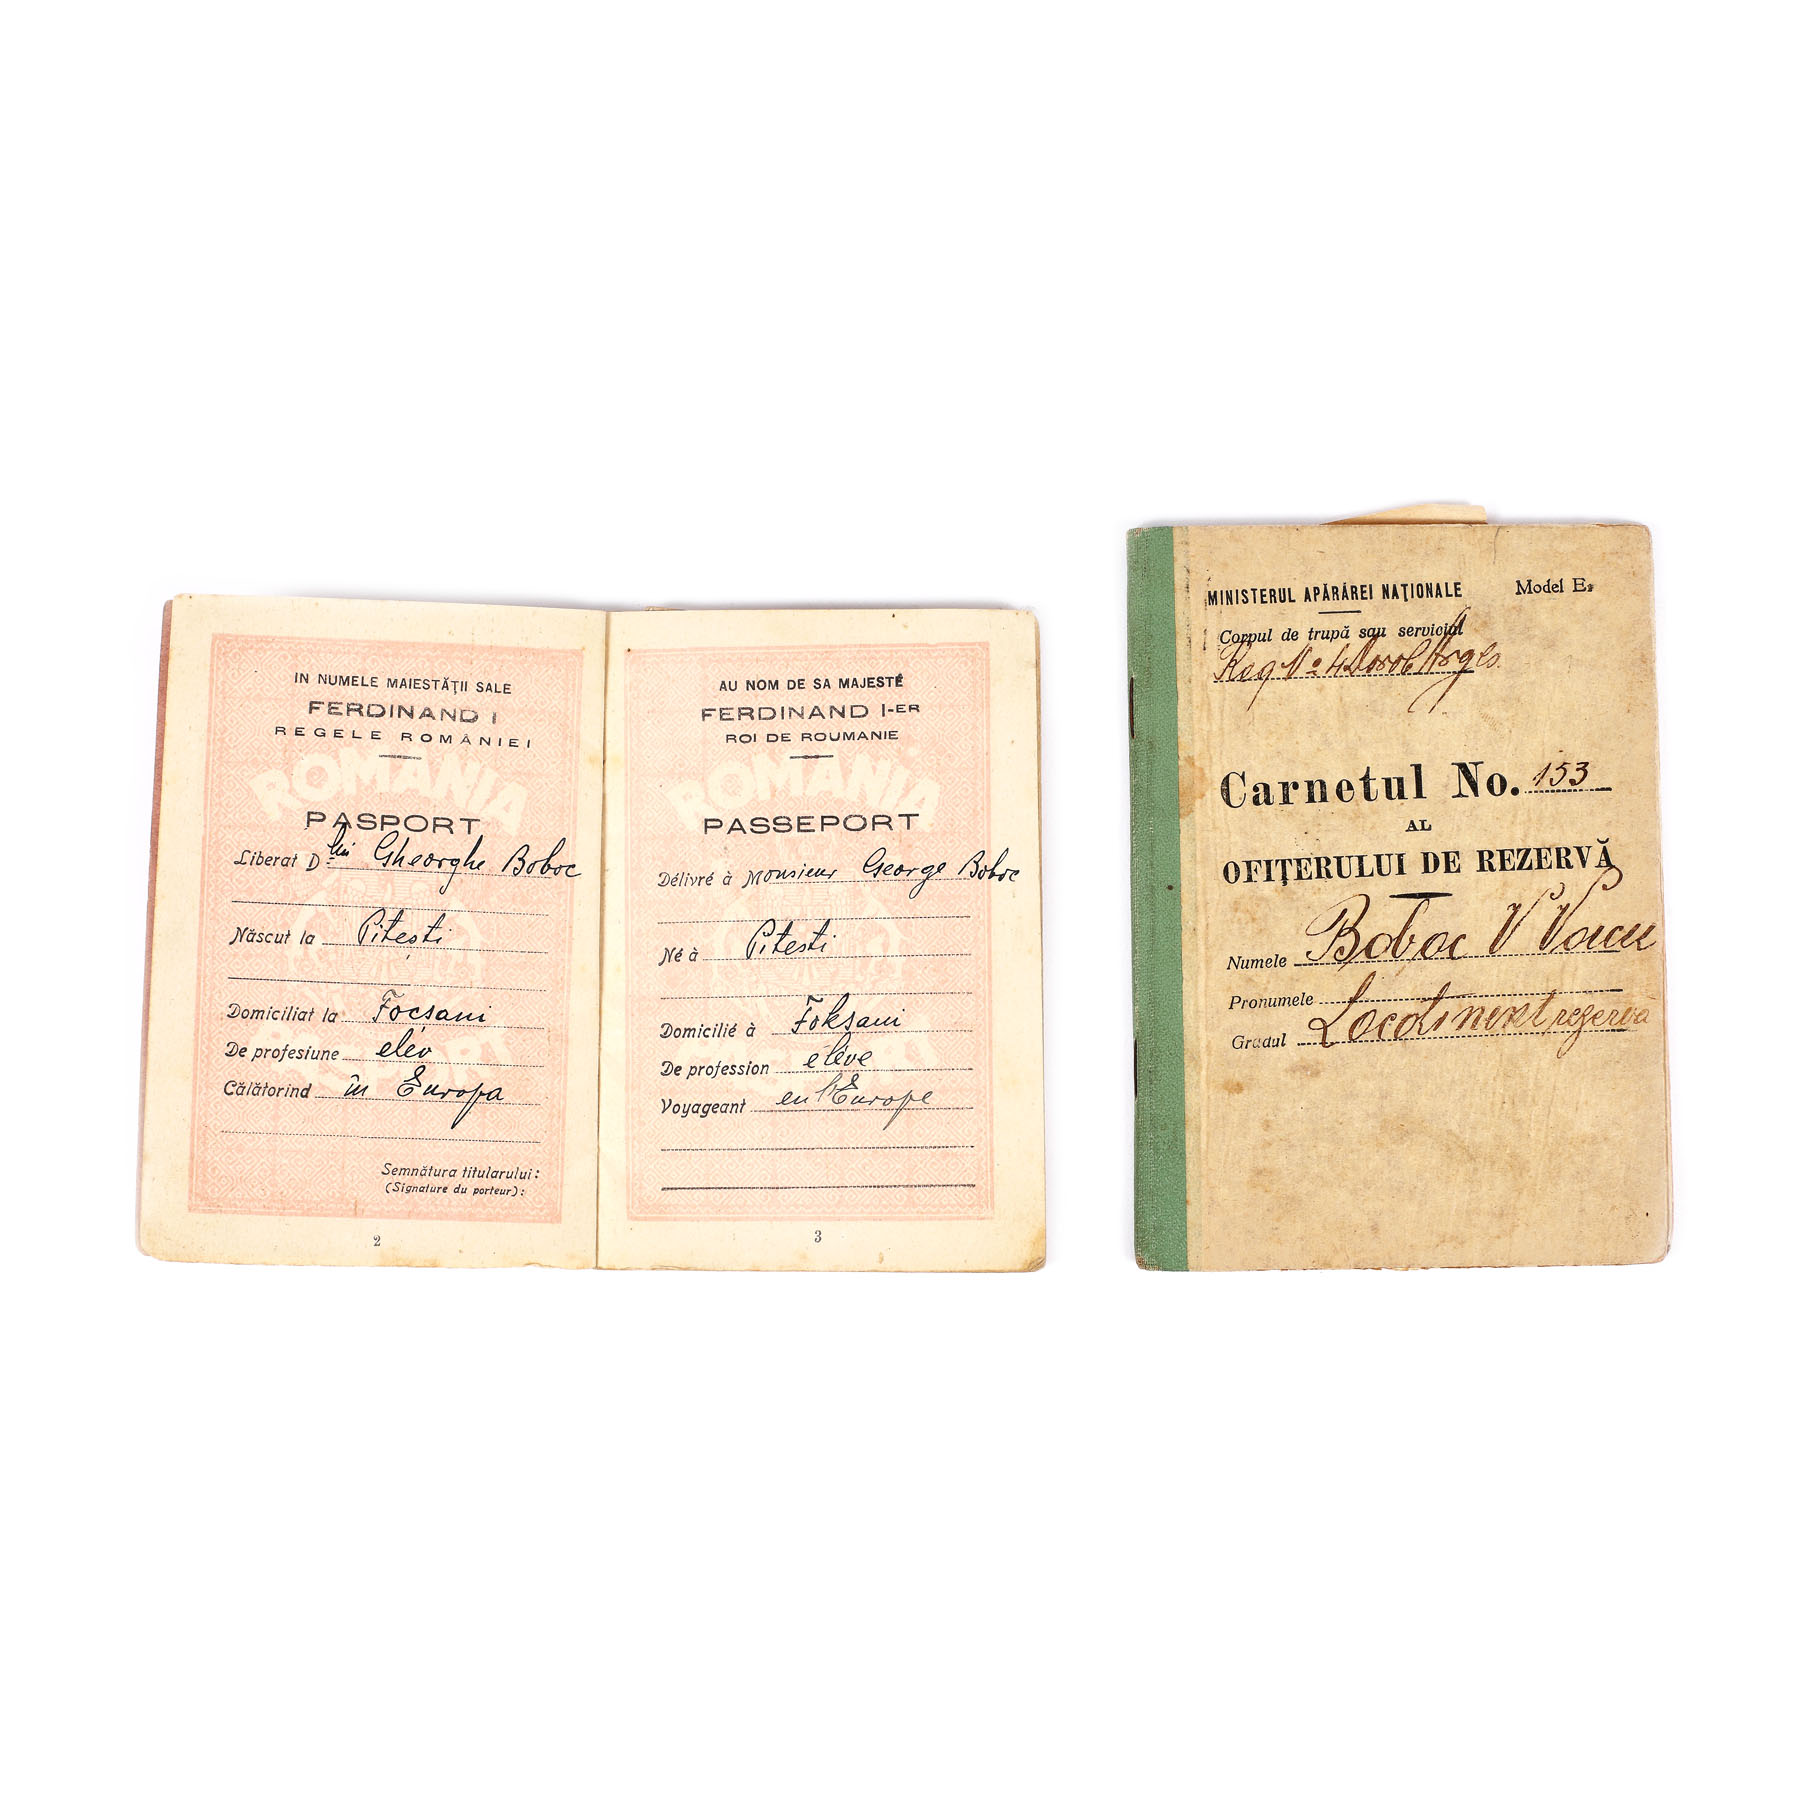 IN NUMELE MAIESTĂŢII SALE
FERDINAND I
REGELE ROMÂNIEI
ROMANIA
PASPORT
Liberat D lui Gheorghe Boboc
Născut la Piteşti
Domiciliat la Focşani
De profesiune elev
Călătorind în Europa
Semnătura titularului:
(Signature du porteur):
2
AU NOM DE SA MAJESTÉ
FERDINAND I-ER
ROI DE ROUMANIE
ROMANIA
PASSEPORT
Délivré à Monsieur George Boboc
Né à Pitesti
Domicilié à Foksani
De profession élève
Voyageant en l'Europe
3
MINISTERUL APĂRĂREI NAŢIONALE Model E.
Corpul de trupă sau serviciul
Reg No 4 Dorob Argeş
Carnetul No. 153
AL
OFIŢERULUI DE REZERVĂ
Numele Boboc V Voicu
Pronumele
Gradul Locotinent rezerva